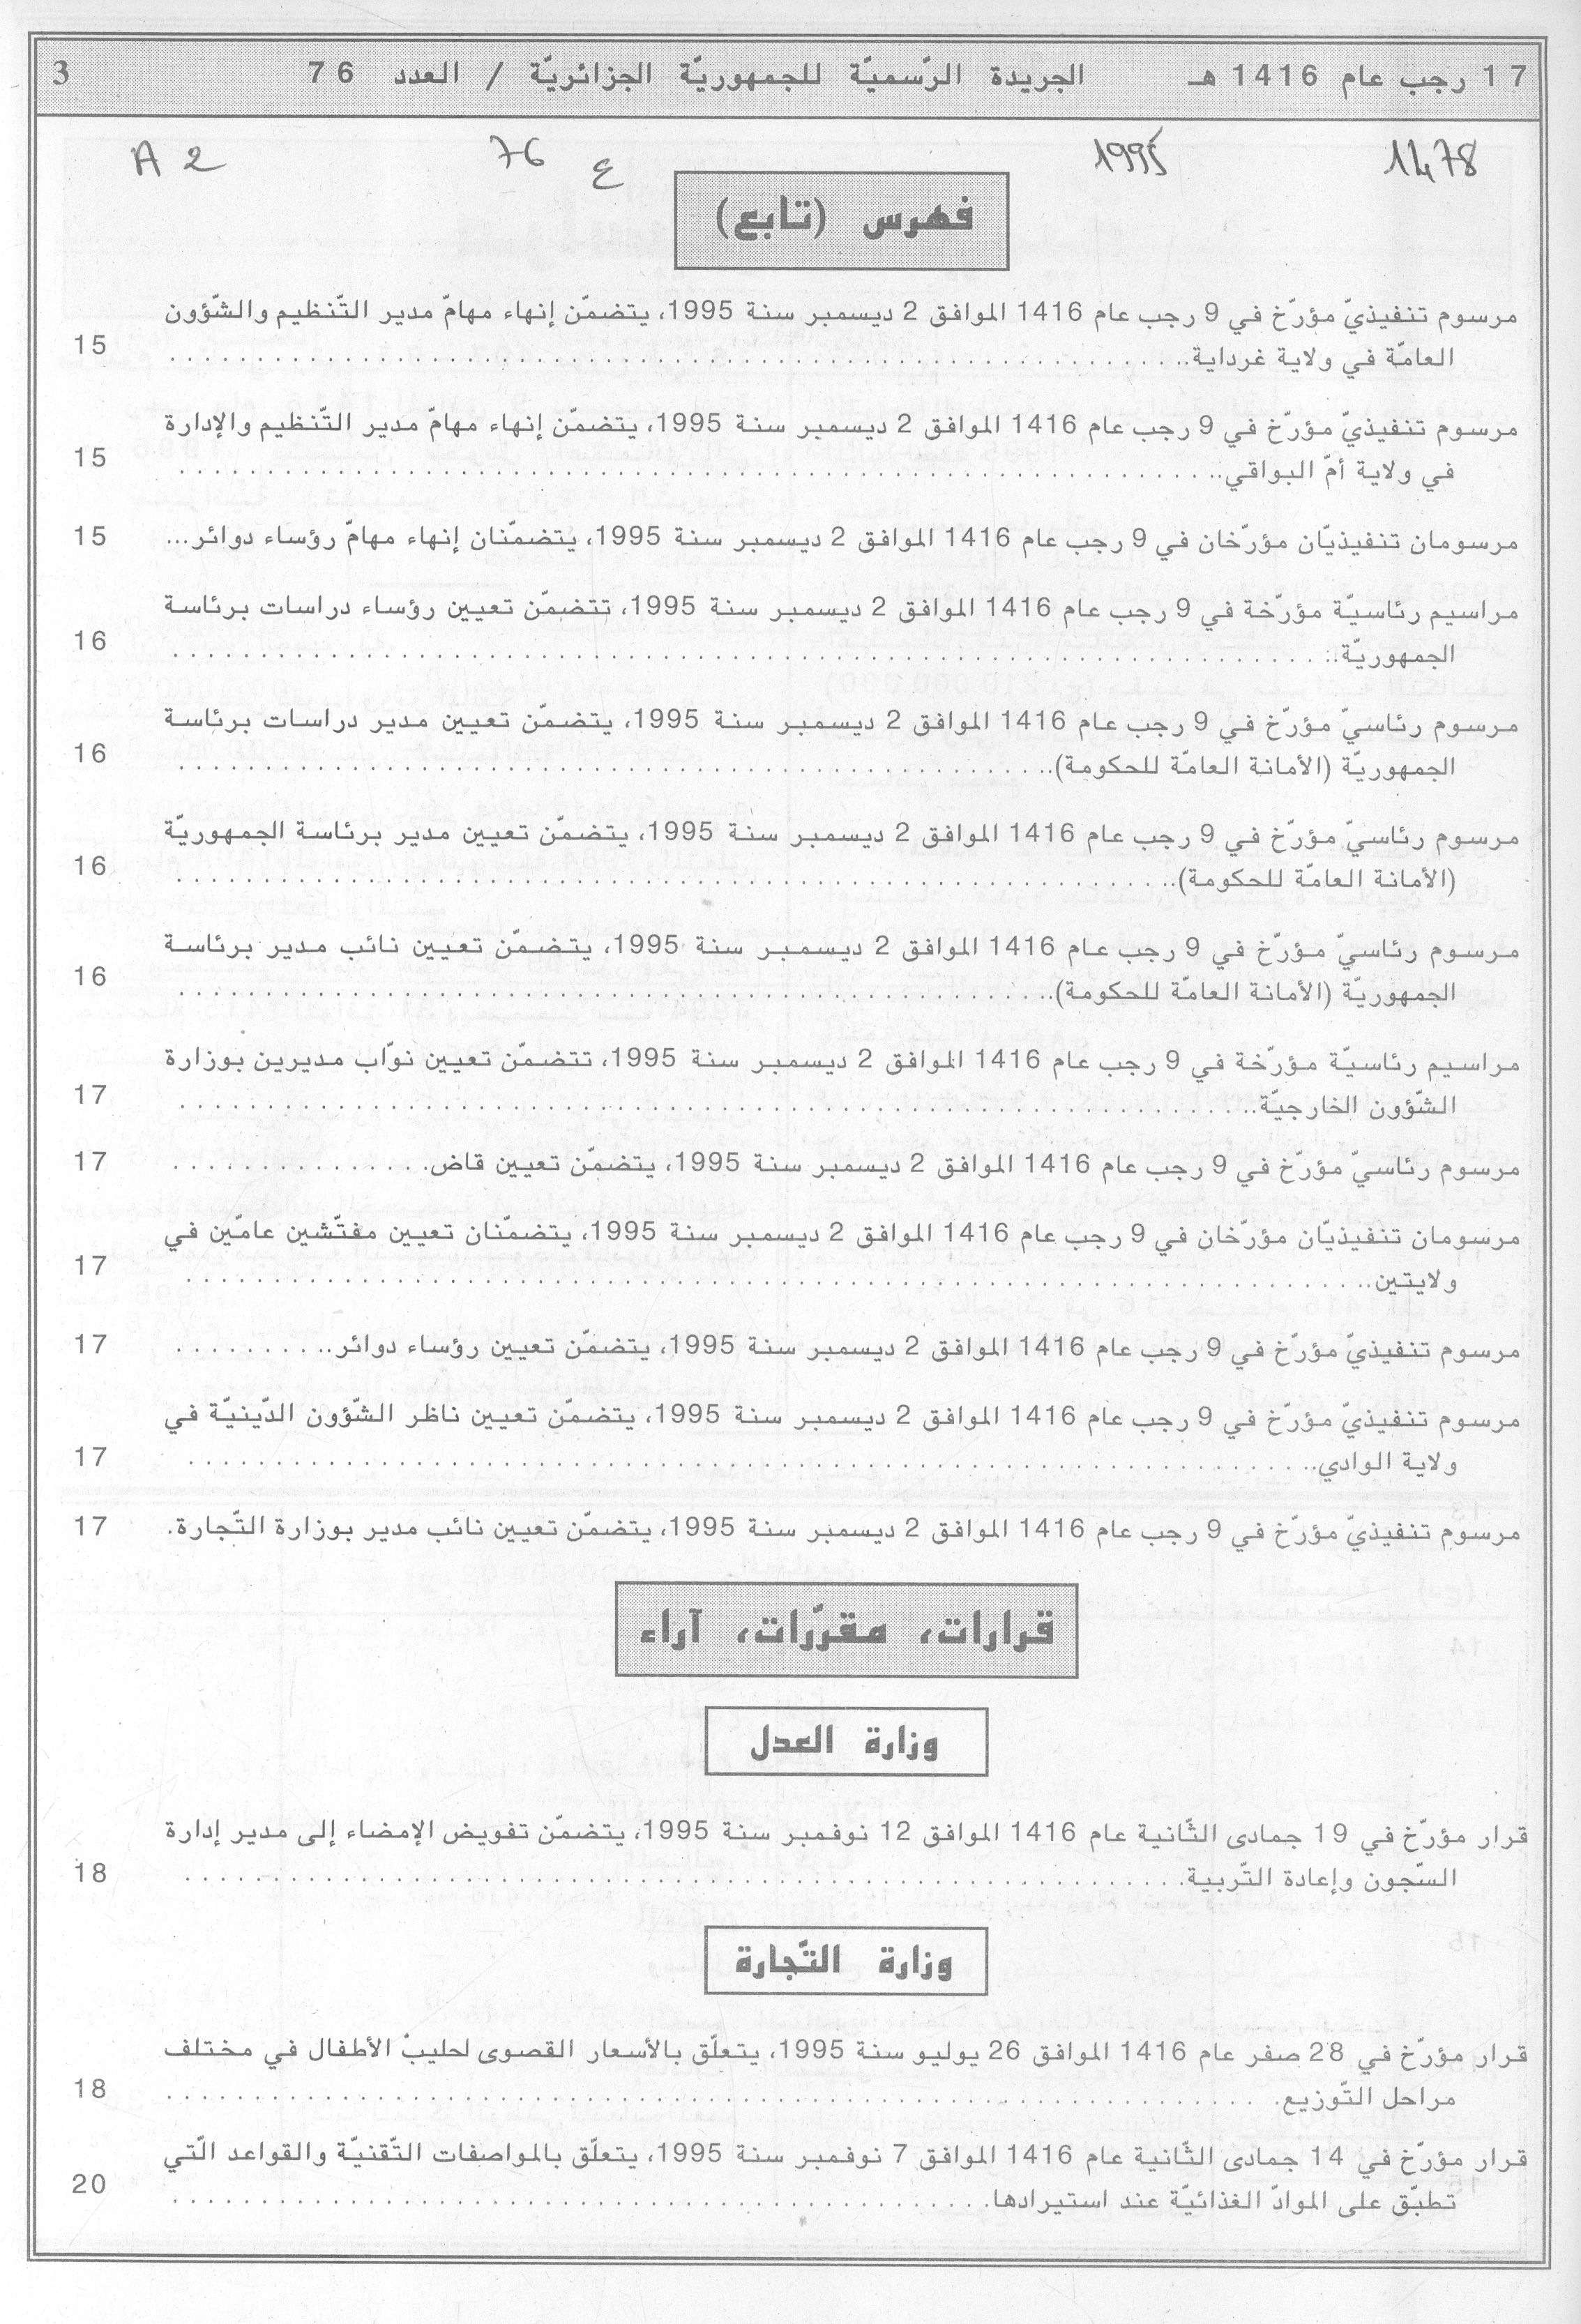 17 رجب عام 1416 هـ الجريدة الرّسميّة للجمهوريّة الجزائريّة / العدد 76 3
1478 1995 ع 76 A 2
فهرس (تابع)
مرسوم تنفيذيّ مؤرّخ في 9 رجب عام 1416 الموافق 2 ديسمبر سنة 1995، يتضمّن إنهاء مهامّ مدير التّنظيم والشّؤون
العامّة في ولاية غرداية.. 15
مرسوم تنفيذيّ مؤرّخ في 9 رجب عام 1416 الموافق 2 ديسمبر سنة 1995، يتضمّن إنهاء مهامّ مدير التّنظيم والإدارة
في ولاية أمّ البواقي.. 15
مرسومان تنفيذيّان مؤرّخان في 9 رجب عام 1416 الموافق 2 ديسمبر سنة 1995، يتضمّنان إنهاء مهامّ رؤساء دوائر... 15
مراسيم رئاسيّة مؤرّخة في 9 رجب عام 1416 الموافق 2 ديسمبر سنة 1995، تتضمّن تعيين رؤساء دراسات برئاسة
الجمهوريّة.. 16
مرسوم رئاسيّ مؤرّخ في 9 رجب عام 1416 الموافق 2 ديسمبر سنة 1995، يتضمّن تعيين مدير دراسات برئاسة
الجمهوريّة (الأمانة العامّة للحكومة).. 16
مرسوم رئاسيّ مؤرّخ في 9 رجب عام 1416 الموافق 2 ديسمبر سنة 1995، يتضمّن تعيين مدير برئاسة الجمهوريّة
(الأمانة العامّة للحكومة).. 16
مرسوم رئاسيّ مؤرّخ في 9 رجب عام 1416 الموافق 2 ديسمبر سنة 1995، يتضمّن تعيين نائب مدير برئاسة
الجمهوريّة (الأمانة العامّة للحكومة).. 16
مراسيم رئاسيّة مؤرّخة في 9 رجب عام 1416 الموافق 2 ديسمبر سنة 1995، تتضمّن تعيين نوّاب مديرين بوزارة
الشّؤون الخارجيّة.. 17
مرسوم رئاسيّ مؤرّخ في 9 رجب عام 1416 الموافق 2 ديسمبر سنة 1995، يتضمّن تعيين قاض. 17
مرسومان تنفيذيّان مؤرّخان في 9 رجب عام 1416 الموافق 2 ديسمبر سنة 1995، يتضمّنان تعيين مفتّشين عامّين في
ولايتين.. 17
مرسوم تنفيذيّ مؤرّخ في 9 رجب عام 1416 الموافق 2 ديسمبر سنة 1995، يتضمّن تعيين رؤساء دوائر.. 17
مرسوم تنفيذيّ مؤرّخ في 9 رجب عام 1416 الموافق 2 ديسمبر سنة 1995، يتضمّن تعيين ناظر الشّؤون الدّينيّة في
ولاية الوادي.. 17
مرسوم تنفيذيّ مؤرّخ في 9 رجب عام 1416 الموافق 2 ديسمبر سنة 1995، يتضمّن تعيين نائب مدير بوزارة التّجارة. 17
قرارات، مقرّرات، آراء
وزارة العدل
قرار مؤرّخ في 19 جمادى الثّانية عام 1416 الموافق 12 نوفمبر سنة 1995، يتضمّن تفويض الإمضاء إلى مدير إدارة
السّجون وإعادة التّربية. 18
وزارة التّجارة
قرار مؤرّخ في 28 صفر عام 1416 الموافق 26 يوليو سنة 1995، يتعلّق بالأسعار القصوى لحليب الأطفال في مختلف
مراحل التّوزيع. 18
قرار مؤرّخ في 14 جمادى الثّانية عام 1416 الموافق 7 نوفمبر سنة 1995، يتعلّق بالمواصفات التّقنيّة والقواعد الّتي
تطبّق على الموادّ الغذائيّة عند استيرادها. 20